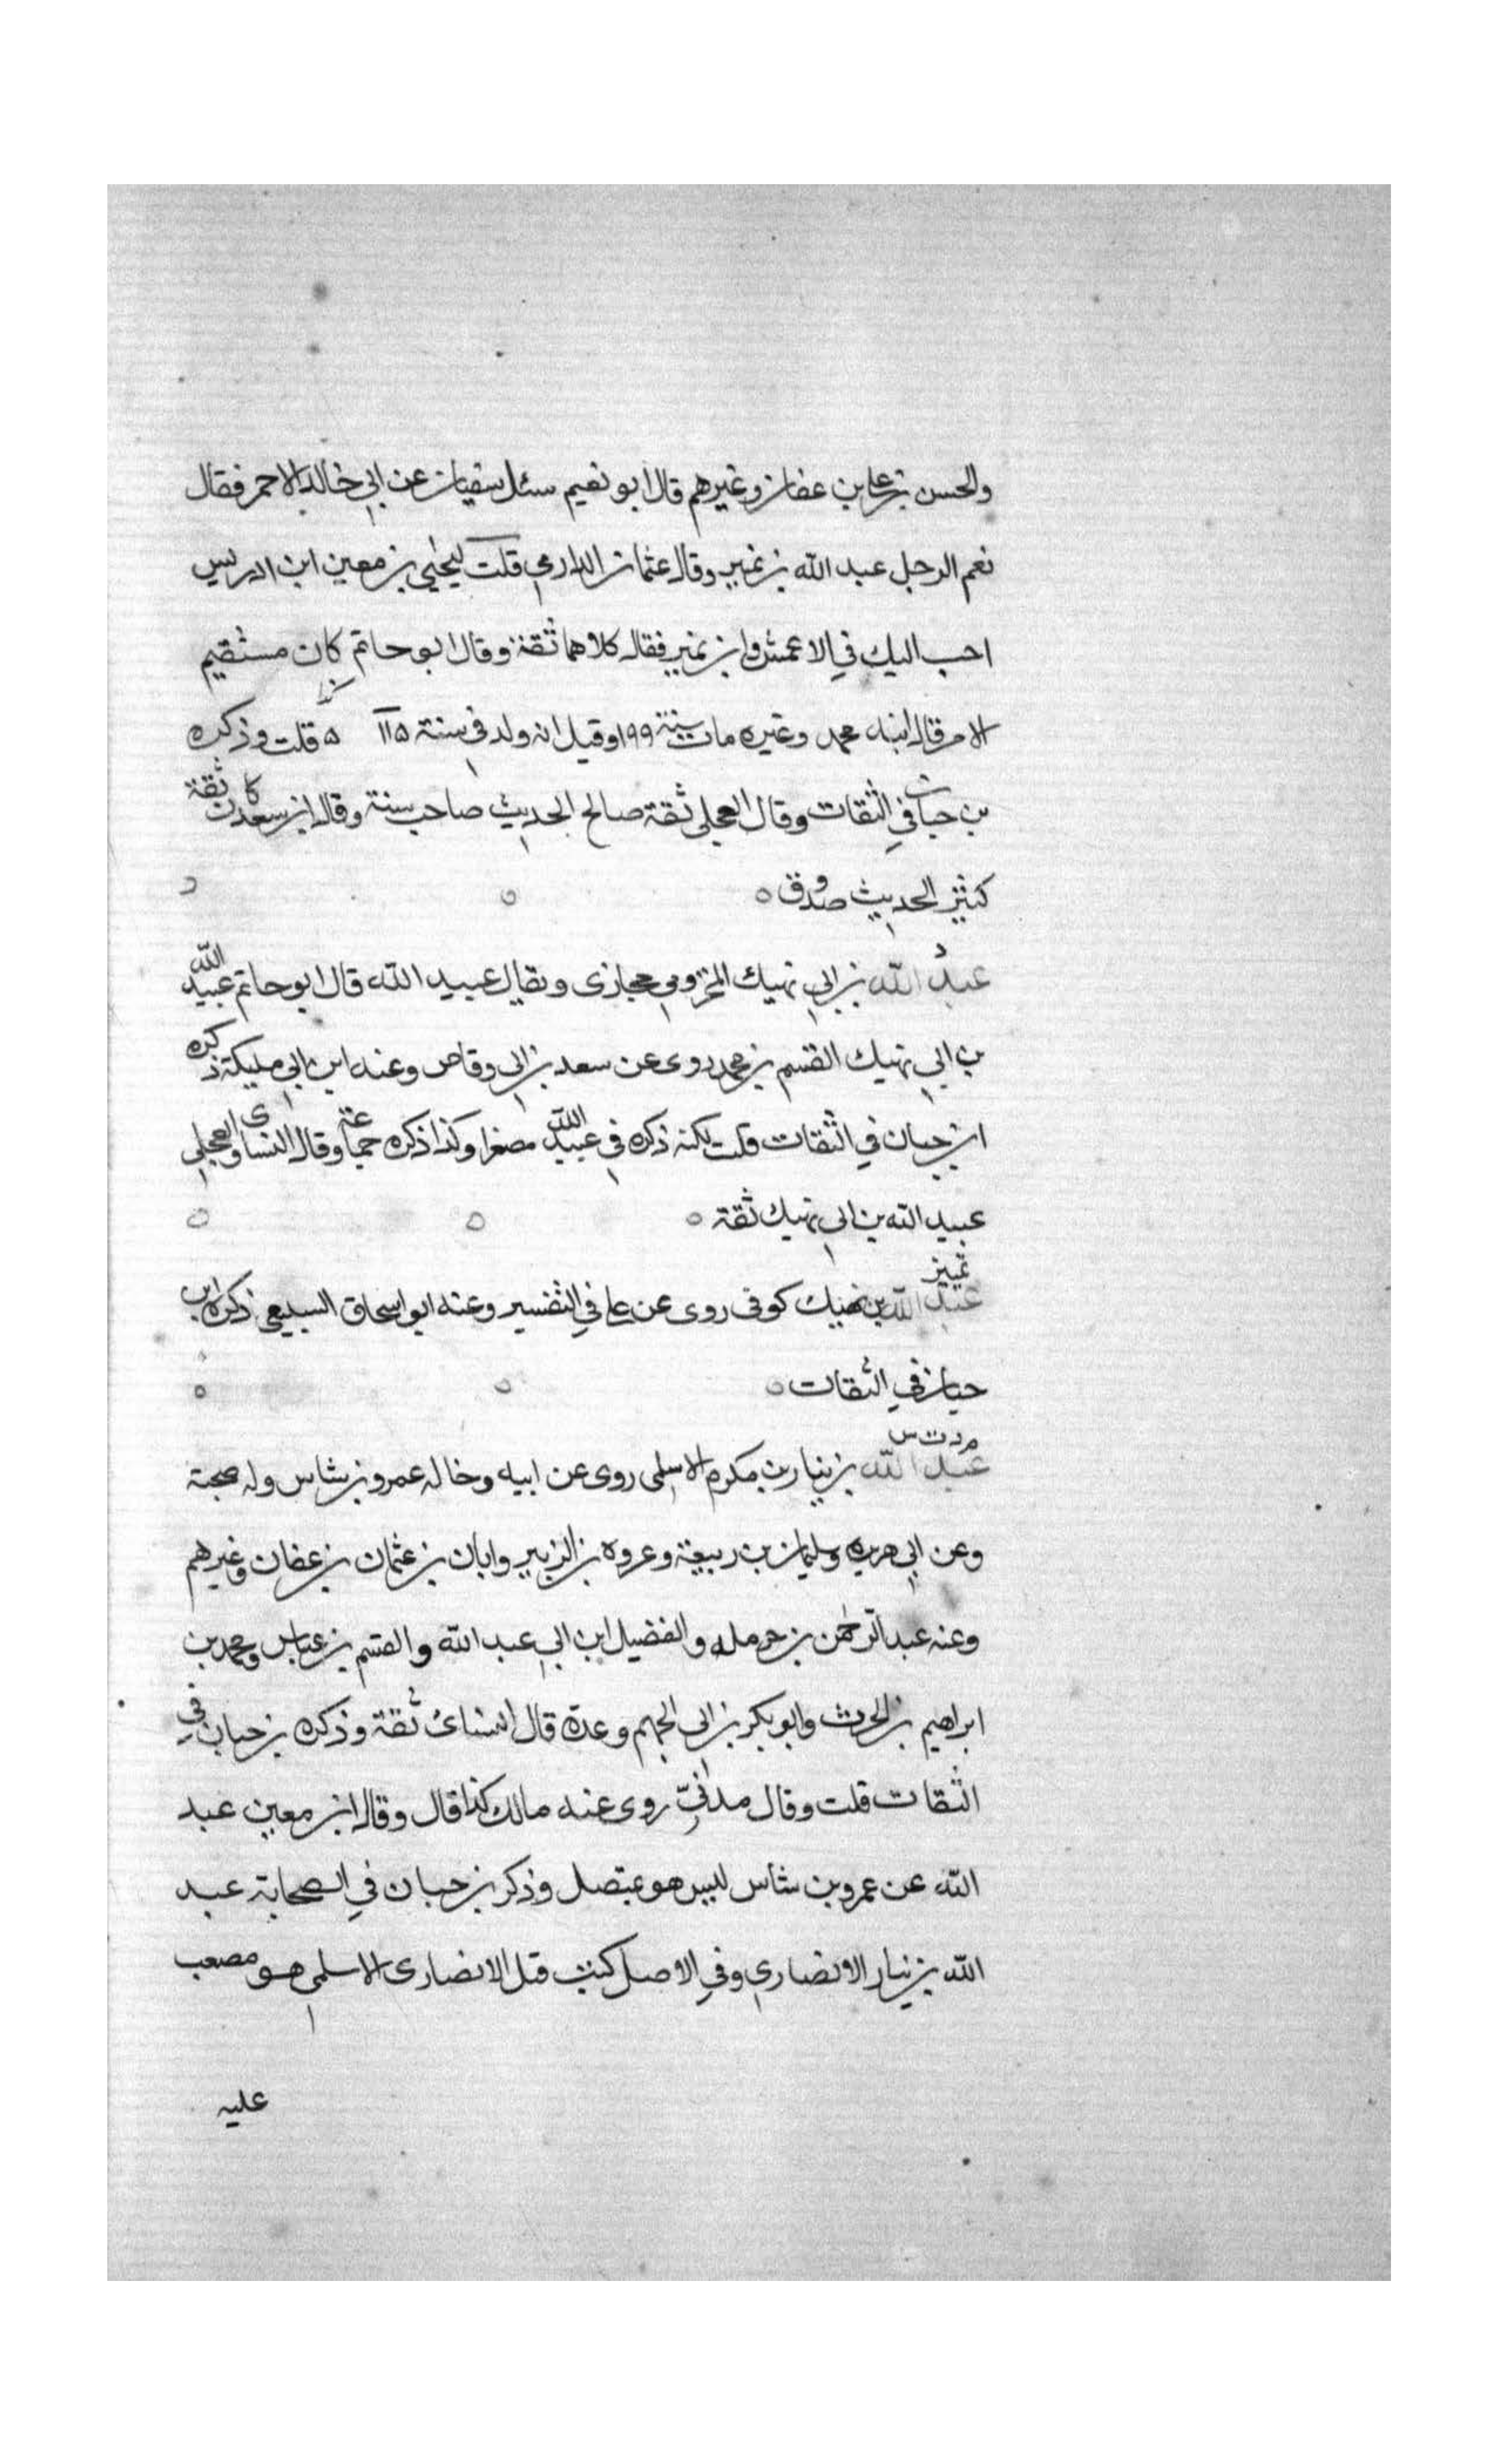 والحسن بن علي بن عفان وغيرهم قال ابو نعيم سئل سفيان عن ابي خالد الاحمر فقال
نعم الرجل عبد الله بن نمير وقال عثمان الدارمي قلت ليحيى بن معين ابن ادريس
احب اليك في الاعمش او ابن نمير فقال كلاهما ثقة وقال ابو حاتم كان مستقيم
الامر قال ابنه محمد وغيره مات سنة ١٩٩ وقيل انه ولد في سنة ١١٥ ه قلت وذكره
بن حبان في الثقات وقال العجلي ثقة صالح الحديث صاحب سنة وقال ابن سعد كان ثقة
كثير الحديث صدوق ه
د
عبد الله بن ابي نهيك المخزومي حجازي ويقال عبيد الله قال ابو حاتم عبيد الله
بن ابي نهيك القسم بن محمد روى عن سعد بن ابي وقاص وعنه ابن ابي مليكة ذكره
ابن حبان في الثقات قلت لكنه ذكره في عبيد الله مصغرا وكذا ذكره جماعة وقال النساى والعجلي
عبيد الله بن ابي نهيك ثقة ه
تمييز
عبد الله بن نهيك كوفي روى عن علي في التفسير وعنه ابو اسحاق السبيعي ذكره ابن
حبان في الثقات ه
م د ت س
عبد الله بن نيار بن مكرم الاسلمي روى عن ابيه وخاله عمرو بن شاس وله صحبة
وعن ابي هريره وسليمان بن ربيعة وعروة بن الزبير وابان بن عثمان بن عفان وغيرهم
وعنه عبد الرحمن بن حرمله والفضيل ابن ابي عبد الله والقسم بن عباس ومحمد بن
ابراهيم بن الحرث وابو بكر بن ابي الجهم وعدة قال النسائ ثقة وذكره بن حبان في
الثقات قلت وقال مدني روى عنه مالك كذا قال وقال ابن معين عبد
الله عن عمرو بن شاس ليس هو بمتصل وذكر بن حبان في الصحابة عبد
الله بن نيار الانصاري وفي الاصل كتب قبل الانصارى الاسلمي هو مصعب
عليه